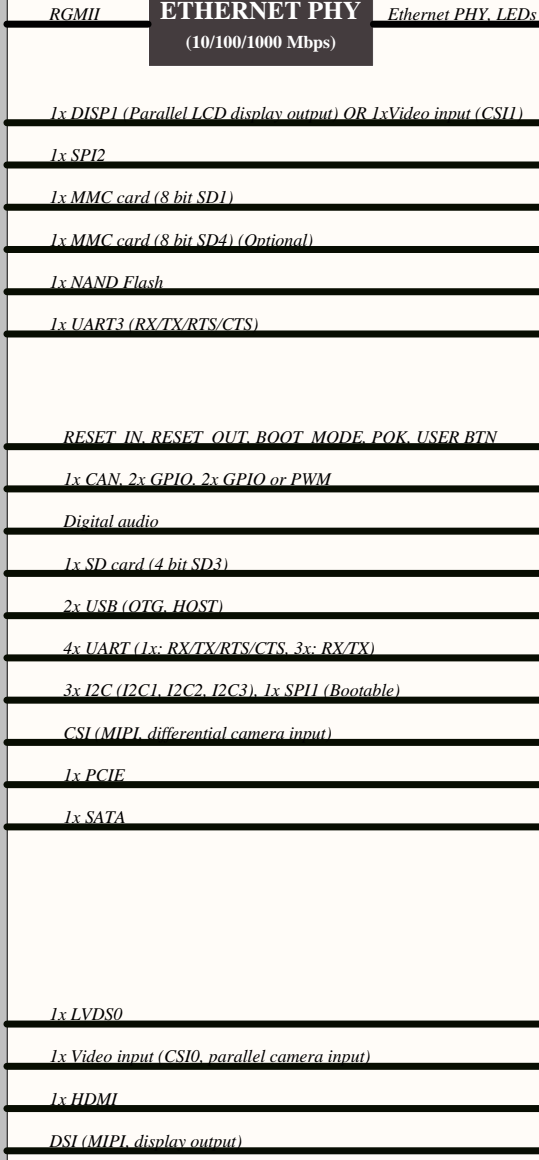 RGMII
ETHERNET PHY
Ethernet PHY, LEDs
(10/100/1000 Mbps)
1x DISP1 (Parallel LCD display output) OR 1xVideo input (CSI1)
1x SPI2
1x MMC card (8 bit SD1)
1x MMC card (8 bit SD4) (Optional)
1x NAND Flash
1x UART3 (RX/TX/RTS/CTS)
RESET_IN, RESET_OUT, BOOT_MODE, POK, USER BTN
1x CAN, 2x GPIO, 2x GPIO or PWM
Digital audio
1x SD card (4 bit SD3)
2x USB (OTG, HOST)
4x UART (1x: RX/TX/RTS/CTS, 3x: RX/TX)
3x I2C (I2C1, I2C2, I2C3), 1x SPI1 (Bootable)
CSI (MIPI, differential camera input)
1x PCIE
1x SATA
1x LVDS0
1x Video input (CSI0, parallel camera input)
1x HDMI
DSI (MIPI, display output)